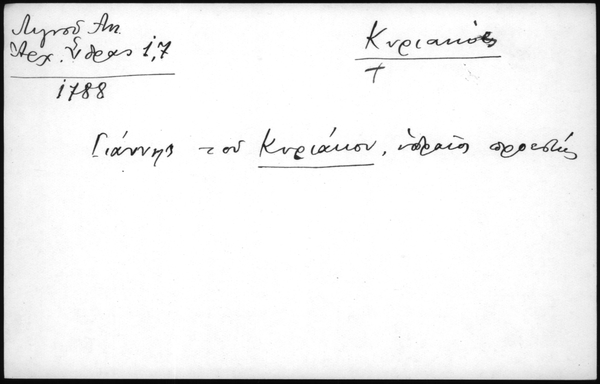 Λιγνοῦ Ἀν.
Ἀρχ. Ὕδρας 1,7
1788
Κυριακός
+
Γιάννης τοῦ Κυριάκου, ὑδραῖος προεστός